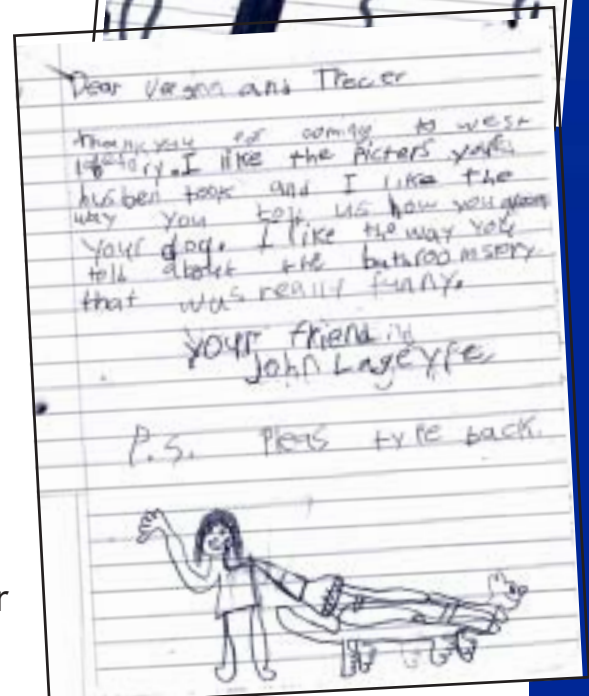 Dear and Tracer
Thank you for coming to west
I like the picters your
husben took and I like the
way you tell us how you groom
your dog. I like the way you
tell about the bathroom story.
that was really funny.
your friend
John Lageyfe
P.S. Pleas type back.
r